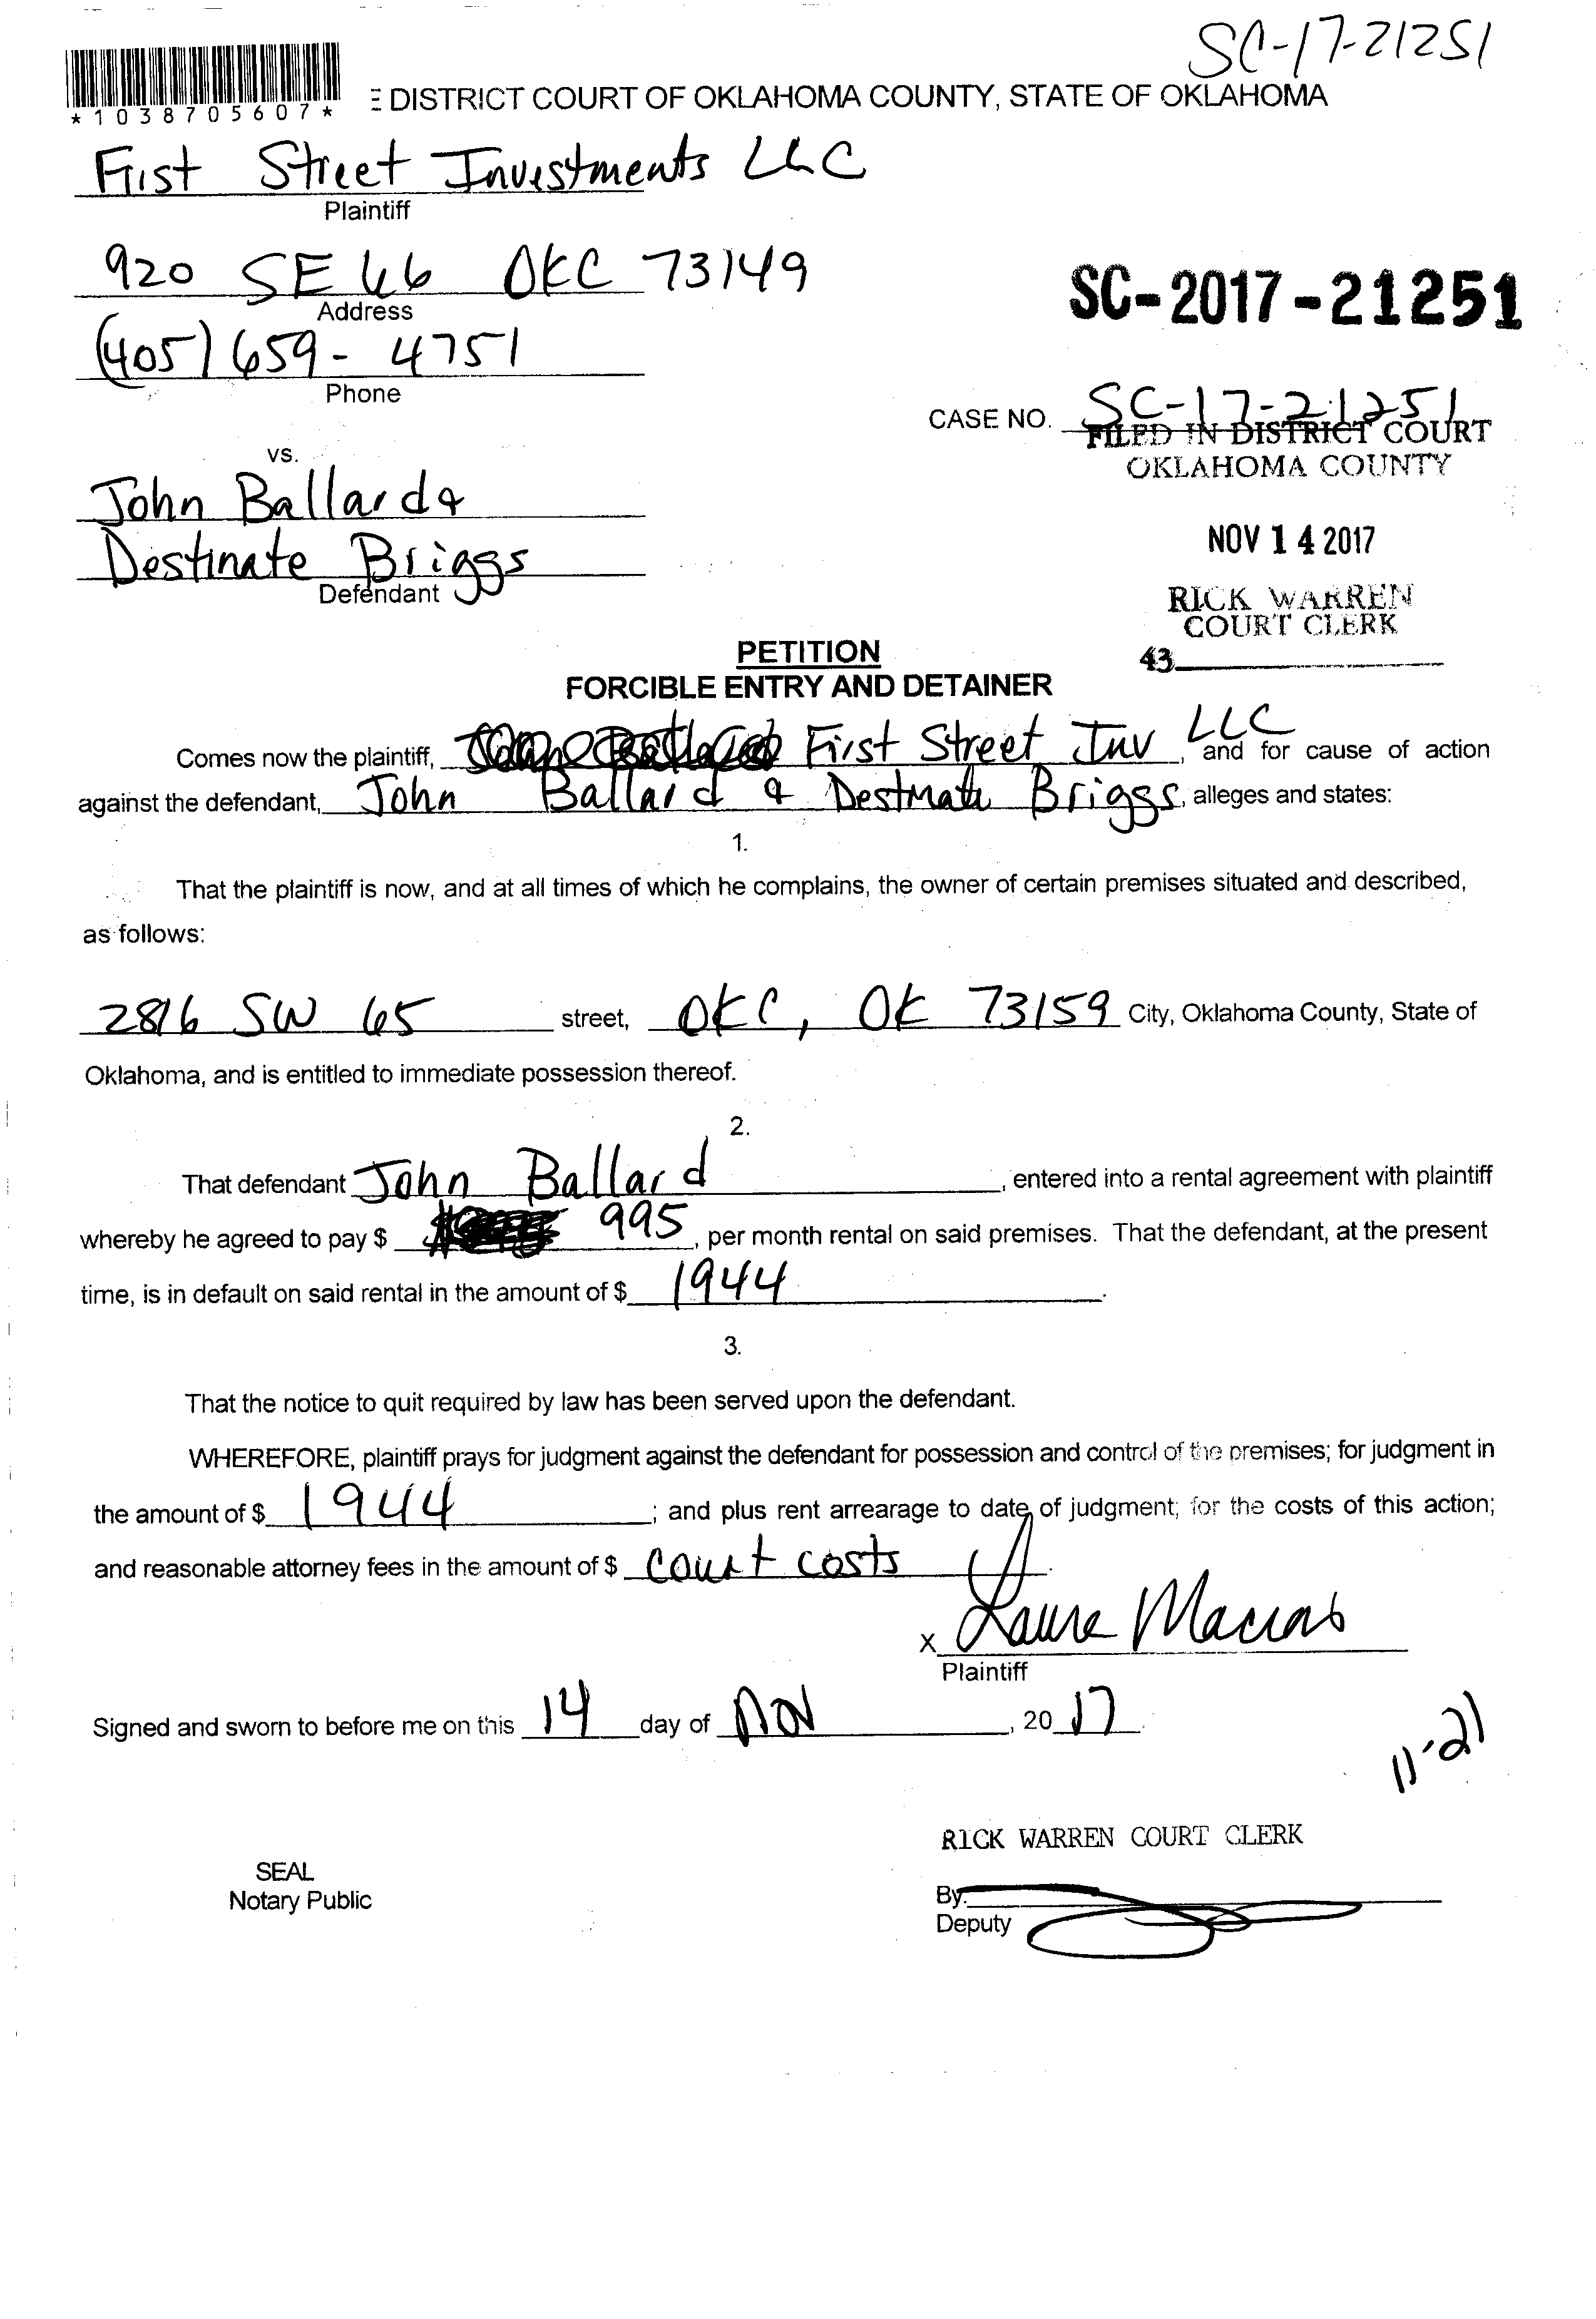 SC-17-21251
* 1 0 3 8 7 0 5 6 0 7 *
E DISTRICT COURT OF OKLAHOMA COUNTY, STATE OF OKLAHOMA
First Street Investments LLC
Plaintiff
920 SE 66 OKC 73149
Address
SC-2017-21251
(405) 659-4751
Phone
CASE NO. SC-17-21251
FILED IN DISTRICT COURT
OKLAHOMA COUNTY
vs.
John Ballard &
NOV 14 2017
Destinate Briggs
Defendant
RICK WARREN
COURT CLERK
43
PETITION
FORCIBLE ENTRY AND DETAINER
Comes now the plaintiff, First Street Inv LLC, and for cause of action
against the defendant, John Ballard & Destinate Briggs, alleges and states:
1.
That the plaintiff is now, and at all times of which he complains, the owner of certain premises situated and described,
as follows:
2816 SW 65 street, OKC, OK 73159 City, Oklahoma County, State of
Oklahoma, and is entitled to immediate possession thereof.
2.
That defendant John Ballard, entered into a rental agreement with plaintiff
whereby he agreed to pay $ 995, per month rental on said premises. That the defendant, at the present
time, is in default on said rental in the amount of $ 1944.
3.
That the notice to quit required by law has been served upon the defendant.
WHEREFORE, plaintiff prays for judgment against the defendant for possession and control of the premises; for judgment in
the amount of $ 1944; and plus rent arrearage to date of judgment; for the costs of this action;
and reasonable attorney fees in the amount of $ court costs.
x Laura Macias
Plaintiff
Signed and sworn to before me on this 14 day of Nov, 2017.
11-21
RICK WARREN COURT CLERK
SEAL
Notary Public
By:
Deputy